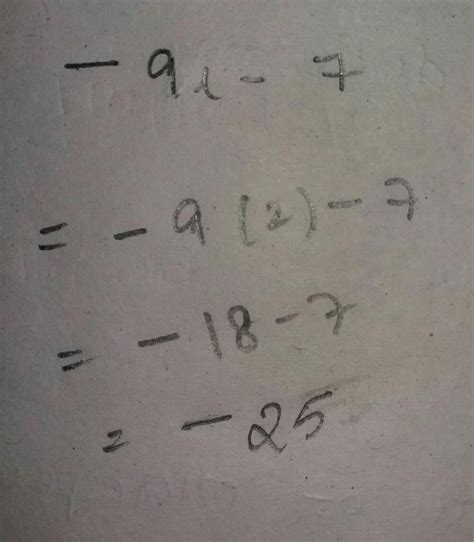 - 9i - 7
= - 9 (2) - 7
= - 18 - 7
= - 25